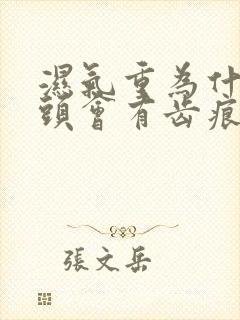 濕氣重為什
頭會有齿痕
張文岳